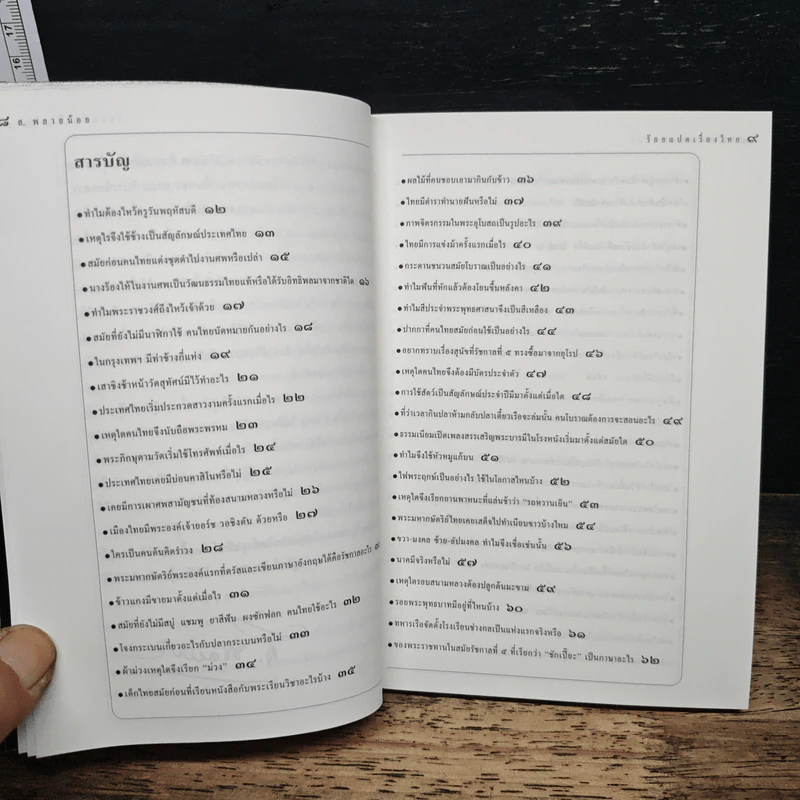 ๘ ส. พลายน้อย
สารบัญ
● ทำไมต้องไหว้ครูวันพฤหัสบดี ๑๒
● เหตุไรจึงใช้ช้างเป็นสัญลักษณ์ประเทศไทย ๑๓
● สมัยก่อนคนไทยแต่งชุดดำไปงานศพหรือเปล่า ๑๕
● นางร้องไห้ในงานศพเป็นวัฒนธรรมไทยแท้หรือได้รับอิทธิพลมาจากชาติใด ๑๖
● ทำไมพระราชวงศ์ถึงไหว้เจ้าด้วย ๑๗
● สมัยที่ยังไม่มีนาฬิกาใช้ คนไทยนัดหมายกันอย่างไร ๑๘
● ในกรุงเทพฯ มีท่าช้างกี่แห่ง ๑๙
● เสาชิงช้าหน้าวัดสุทัศน์มีไว้ทำอะไร ๒๑
● ประเทศไทยเริ่มประกวดสาวงามครั้งแรกเมื่อไร ๒๒
● เหตุใดคนไทยจึงนับถือพระพรหม ๒๓
● พระภิกษุตามวัดเริ่มใช้โทรศัพท์เมื่อไร ๒๔
● ประเทศไทยเคยมีบ่อนคาสิโนหรือไม่ ๒๕
● เคยมีการเผาศพสามัญชนที่ท้องสนามหลวงหรือไม่ ๒๖
● เมืองไทยมีพระองค์เจ้ายอร์ช วอชิงตัน ด้วยหรือ ๒๗
● ใครเป็นคนต้นคิดรำวง ๒๘
● พระมหากษัตริย์พระองค์แรกที่ตรัสและเขียนภาษาอังกฤษได้คือรัชกาลอะไร
● ข้าวแกงมีขายมาตั้งแต่เมื่อไร ๓๑
● สมัยที่ยังไม่มีสบู่ แชมพู ยาสีฟัน ผงซักฟอก คนไทยใช้อะไร ๓๒
● โจงกระเบนเกี่ยวอะไรกับปลากระเบนหรือไม่ ๓๓
● ผ้าม่วงเหตุใดจึงเรียก "ม่วง" ๓๔
● เด็กไทยสมัยก่อนที่เรียนหนังสือกับพระเรียนวิชาอะไรบ้าง ๓๕
ร้อยแปดเรื่องไทย ๙
● ผลไม้ที่คนชอบเอามากินกับข้าว ๓๖
● ไทยมีตำราทำนายฝันหรือไม่ ๓๗
● ภาพจิตรกรรมในพระอุโบสถเป็นรูปอะไร ๓๙
● ไทยมีการแข่งม้าครั้งแรกเมื่อไร ๔๐
● กระดานชนวนสมัยโบราณเป็นอย่างไร ๔๑
● ทำไมฟันที่หักแล้วต้องโยนขึ้นหลังคา ๔๒
● ทำไมสีประจำพระพุทธศาสนาจึงเป็นสีเหลือง ๔๓
● ปากกาที่คนไทยสมัยก่อนใช้เป็นอย่างไร ๔๔
● อยากทราบเรื่องสุนัขที่รัชกาลที่ ๕ ทรงซื้อมาจากยุโรป ๔๖
● เหตุใดคนไทยจึงต้องมีบัตรประจำตัว ๔๗
● การใช้สัตว์เป็นสัญลักษณ์ประจำปีมีมาตั้งแต่เมื่อใด ๔๘
● ที่ว่าเวลากินปลาห้ามกลับปลาเดี๋ยวเรือจะล่มนั้น คนโบราณต้องการจะสอนอะไร ๔๙
● ธรรมเนียมเปิดเพลงสรรเสริญพระบารมีในโรงหนังเริ่มมาตั้งแต่สมัยใด ๕๐
● ทำไมจึงใช้หัวหมูแก้บน ๕๑
● ไฟพระฤกษ์เป็นอย่างไร ใช้ในโอกาสไหนบ้าง ๕๒
● เหตุใดจึงเรียกยานพาหนะที่แล่นช้าว่า "รถหวานเย็น" ๕๓
● พระมหากษัตริย์ไทยเคยเสด็จไปทำเนียบขาวบ้างไหม ๕๔
● ขวา-มงคล ซ้าย-อัปมงคล ทำไมจึงเชื่อเช่นนั้น ๕๖
● นาคมีจริงหรือไม่ ๕๗
● เหตุใดรอบสนามหลวงต้องปลูกต้นมะขาม ๕๙
● รอยพระพุทธบาทมีอยู่ที่ไหนบ้าง ๖๐
● ทหารเรือจัดตั้งโรงเรียนช่างกลเป็นแห่งแรกจริงหรือ ๖๑
● ของพระราชทานในสมัยรัชกาลที่ ๕ ที่เรียกว่า "ซักเปี๊ยะ" เป็นภาษาอะไร ๖๒
17
16